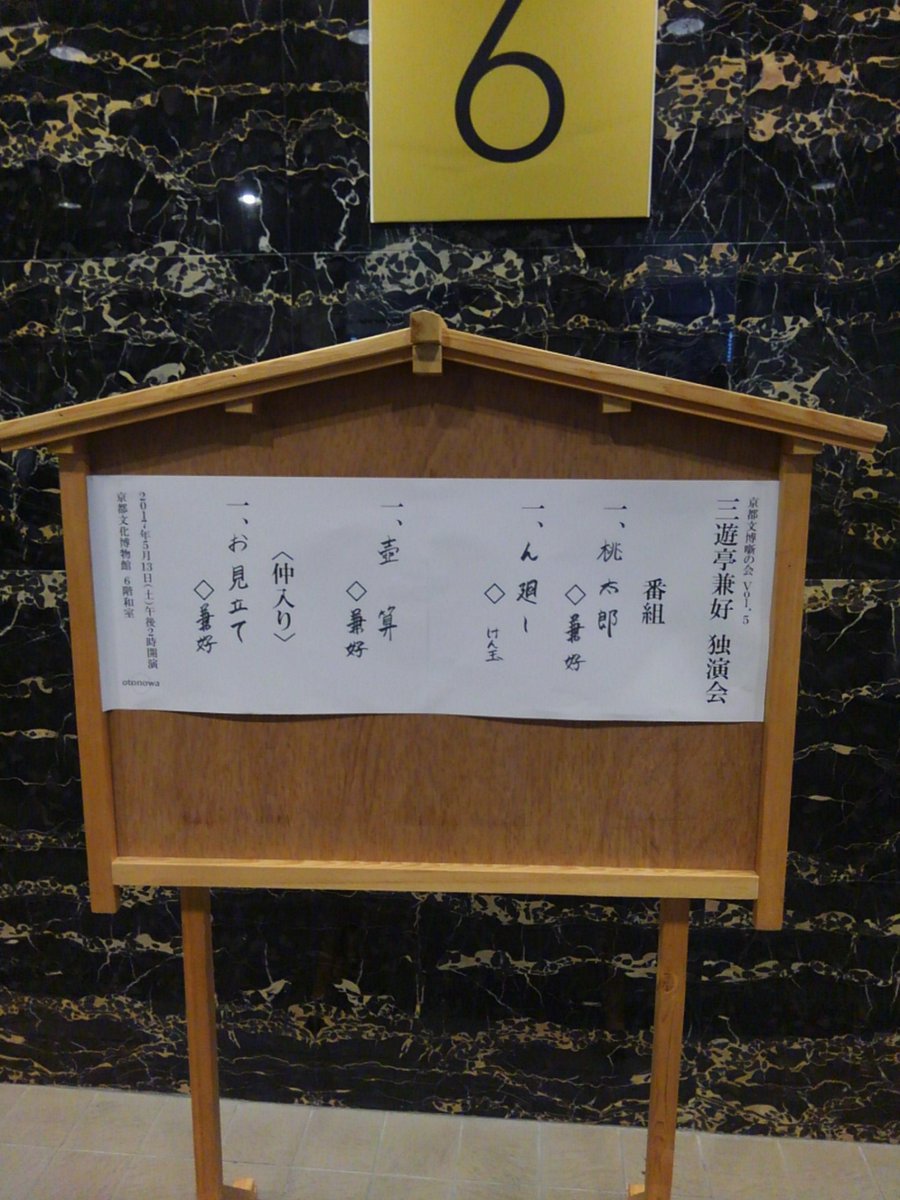 6
京都文博噺の会 Vol.5
三遊亭兼好 独演会
番組
一、桃太郎
◇兼好
一、ん廻し
◇けん玉
一、壺算
◇兼好
〈仲入り〉
一、お見立て
◇兼好
2017年5月13日(土)午後2時開演
京都文化博物館 6階和室
otonowa